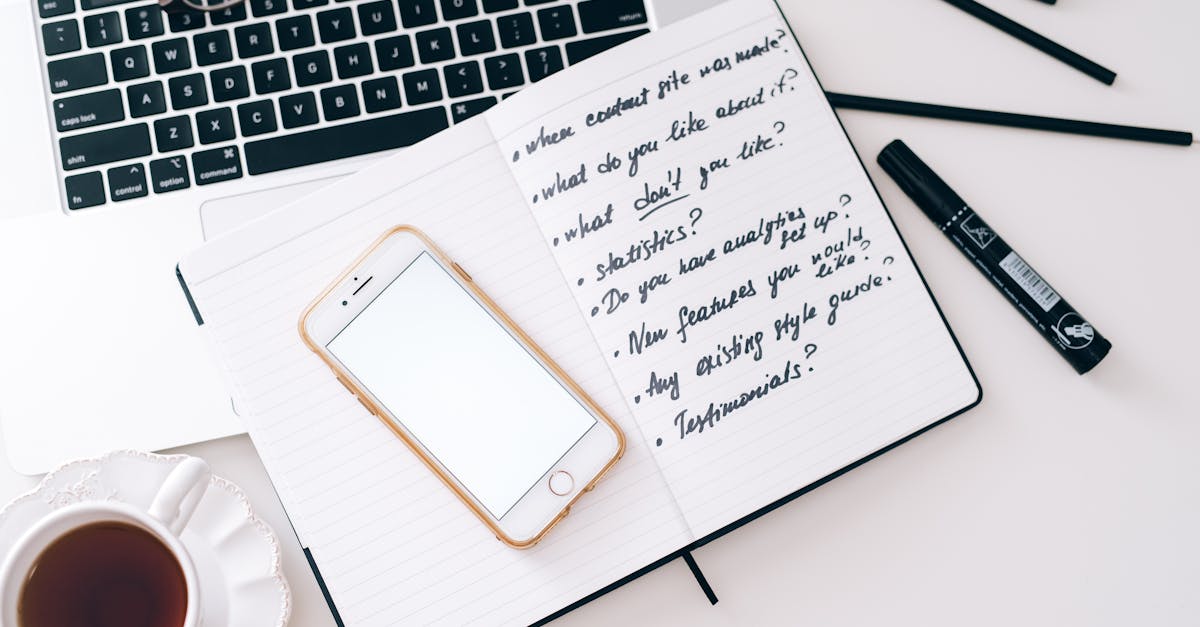 esc
return
tab
Q W E R T Y U I O P
caps lock
A S D F G H J K L
shift
Z X C V B N M
fn
control
option
command
• when content site was made?
• what do you like about it?
• what don't you like?
• statistics?
• Do you have analytics
set up?
• New features you would
like?
• Any existing style guide?
• Testimonials?